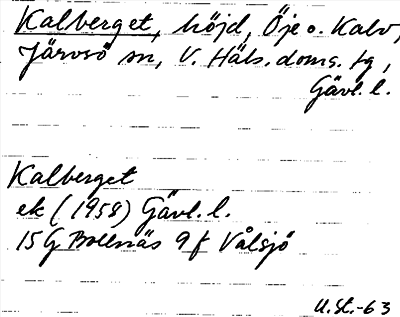 Kalberget, höjd, Öje o. Kalv,
Järvsö sn, V. Häls. doms. tg,
Gävl. l.
Kalberget
ek (1958) Gävl. l.
15G Bollnäs 9f Vålsjö
U.St.-63